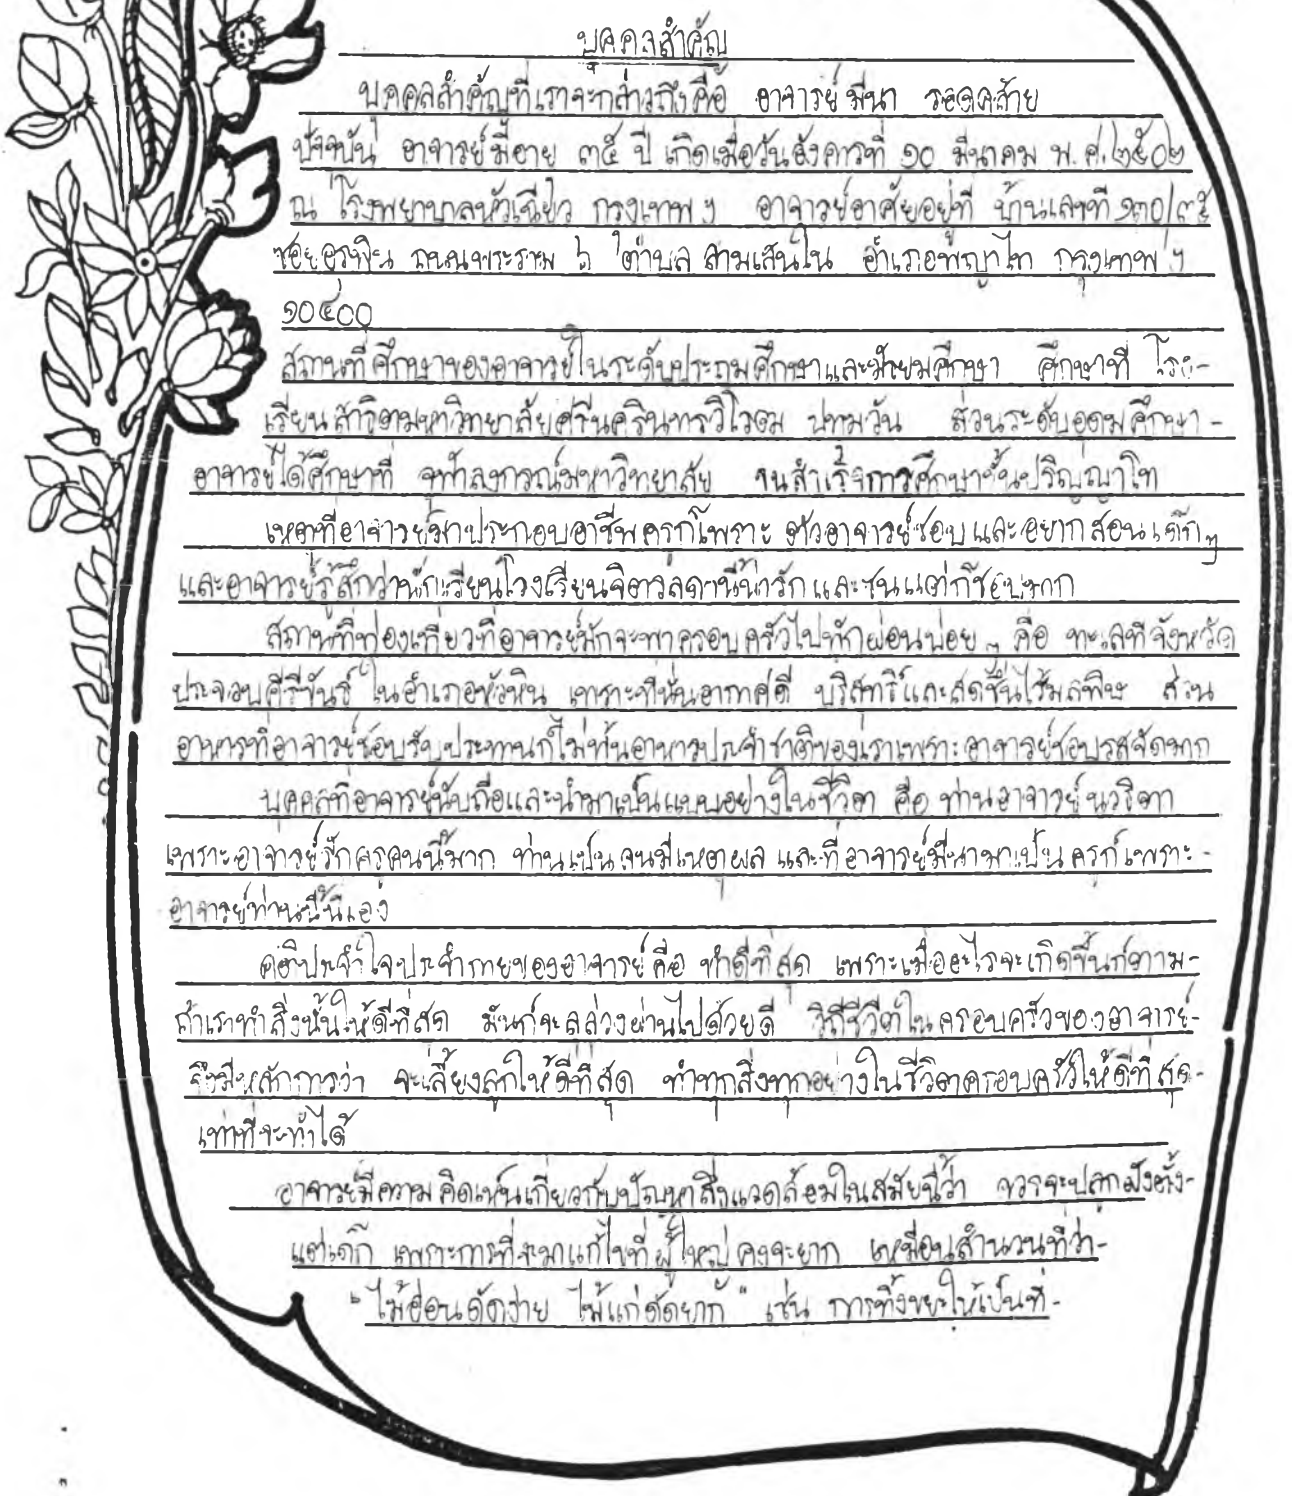 บุคคลสำคัญ
บุคคลสำคัญที่เราจะกล่าวถึงคือ อาจารย์ มีนา รอดคล้าย
ปัจจุบัน อาจารย์มีอายุ ๓๕ ปี เกิดเมื่อวันอังคารที่ ๑๐ มีนาคม พ.ศ.๒๕๐๒
ณ โรงพยาบาลหัวเฉียว กรุงเทพฯ อาจารย์อาศัยอยู่ที่ บ้านเลขที่ ๑๓๐/๓๕
ซอย ถนนพระราม ๖ ตำบล สามเสนใน อำเภอพญาไท กรุงเทพฯ
๑๐๔๐๐
สถานที่ศึกษาของอาจารย์ในระดับประถมศึกษาและมัธยมศึกษา ศึกษาที่ โรง-
เรียนสาธิตมหาวิทยาลัยศรีนครินทรวิโรฒ ปทุมวัน ส่วนระดับอุดมศึกษา-
อาจารย์ได้ศึกษาที่ จุฬาลงกรณ์มหาวิทยาลัย จนสำเร็จการศึกษาชั้นปริญญาโท
เหตุที่อาจารย์มาประกอบอาชีพครูก็เพราะ ตัวอาจารย์ชอบและอยากสอนเด็กๆ
และอาจารย์รู้สึกว่านักเรียนโรงเรียนจิตรลดานี้น่ารักและซนแต่ก็ชอบมาก
สถานที่ท่องเที่ยวที่อาจารย์มักจะพาครอบครัวไปพักผ่อนบ่อย ๆ คือ ทะเลที่จังหวัด
ประจวบคีรีขันธ์ ในอำเภอหัวหิน เพราะที่นั่นอากาศดี บริสุทธิ์และสดชื่นไร้มลพิษ ส่วน
อาหารที่อาจารย์ชอบรับประทานก็ไม่พ้นอาหารประจำชาติของเราเพราะอาจารย์ชอบรสจัดมาก
บุคคลที่อาจารย์นับถือและนำมาเป็นแบบอย่างในชีวิต คือ ท่านอาจารย์
เพราะอาจารย์รักครูคนนี้มาก ท่านเป็นคนมีเหตุผล และที่อาจารย์มีนามาเป็นครูก็เพราะ-
อาจารย์ท่านนี้นี่เอง
คติประจำใจประจำกายของอาจารย์ คือ ทำดีที่สุด เพราะเมื่ออะไรจะเกิดขึ้นก็ตาม-
ถ้าเราทำสิ่งนั้นให้ดีที่สุด มันก็จะลุล่วงผ่านไปด้วยดี วิถีชีวิตในครอบครัวของอาจารย์-
จึงมีหลักการว่า จะเลี้ยงลูกให้ดีที่สุด ทำทุกสิ่งทุกอย่างในชีวิตครอบครัวให้ดีที่สุด-
เท่าที่จะทำได้
อาจารย์มีความคิดเห็นเกี่ยวกับปัญหาสิ่งแวดล้อมในสมัยนี้ว่า ควรจะปลูกฝังตั้ง-
แต่เด็ก เพราะการที่จะมาแก้ไขที่ผู้ใหญ่คงจะยาก เหมือนสำนวนที่ว่า-
"ไม้อ่อนดัดง่าย ไม้แก่ดัดยาก" เช่น การทิ้งขยะให้เป็นที่-